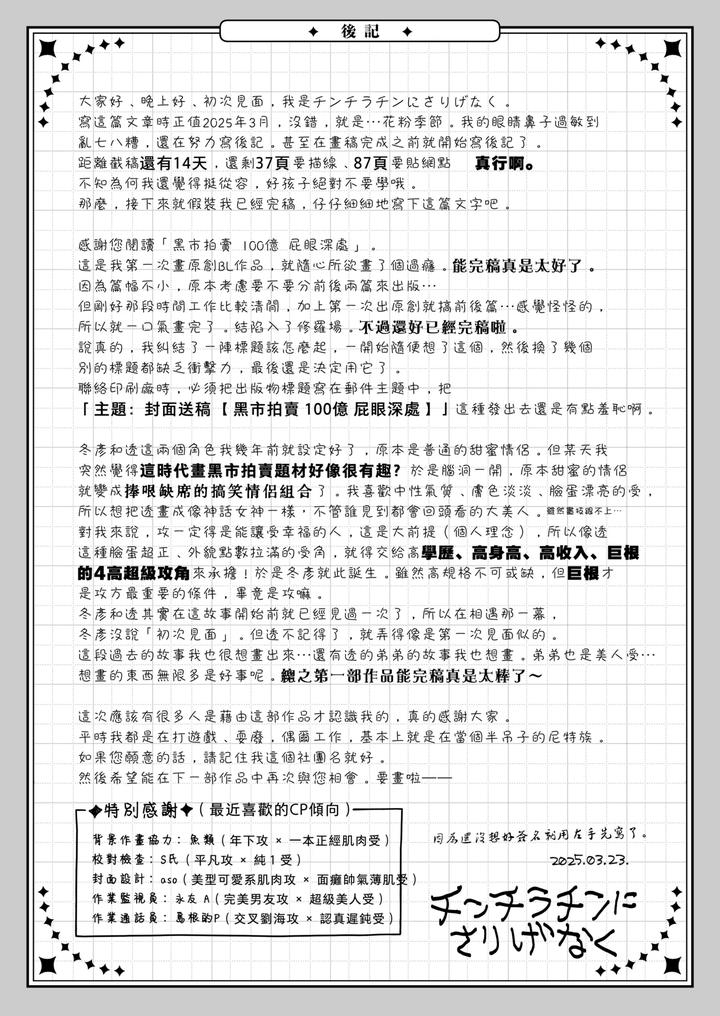 後記
大家好、晚上好、初次見面，我是チンチラチンにさりげなく。
寫這篇文章時正值2025年3月，沒錯，就是…花粉季節。我的眼睛鼻子過敏到
亂七八糟，還在努力寫後記。甚至在畫稿完成之前就開始寫後記了。
距離截稿還有14天，還剩37頁要描線、87頁要貼網點　真行啊。
不知為何我還覺得挺從容，好孩子絕對不要學哦。
那麼，接下來就假裝我已經完稿，仔仔細細地寫下這篇文字吧。
感謝您閱讀「黑市拍賣 100億 屁眼深處」。
這是我第一次畫原創BL作品，就隨心所欲畫了個過癮。能完稿真是太好了。
因為篇幅不小，原本考慮要不要分前後兩篇來出版…
但剛好那段時間工作比較清閒，加上第一次出原創就搞前後篇…感覺怪怪的，
所以就一口氣畫完了。結陷入了修羅場。不過還好已經完稿啦。
說真的，我糾結了一陣標題該怎麼起，一開始隨便想了這個，然後換了幾個
別的標題都缺乏衝擊力，最後還是決定用它了。
聯絡印刷廠時，必須把出版物標題寫在郵件主題中，把
「主題：封面送稿【黑市拍賣 100億 屁眼深處】」這種發出去還是有點羞恥啊。
冬彥和透這兩個角色我幾年前就設定好了，原本是普通的甜蜜情侶。但某天我
突然覺得這時代畫黑市拍賣題材好像很有趣？於是腦洞一開，原本甜蜜的情侶
就變成捧哏缺席的搞笑情侶組合了。我喜歡中性氣質、膚色淡淡、臉蛋漂亮的受，
所以想把透畫成像神話女神一樣，不管誰見到都會回頭看的大美人。雖然畫技跟不上…
對我來說，攻一定得是能讓受幸福的人，這是大前提（個人理念），所以像透
這種臉蛋超正、外貌點數拉滿的受角，就得交給高學歷、高身高、高收入、巨根
的4高超級攻角來承擔！於是冬彥就此誕生。雖然高規格不可或缺，但巨根才
是攻方最重要的條件，畢竟是攻嘛。
冬彥和透其實在這故事開始前就已經見過一次了，所以在相遇那一幕，
冬彥沒說「初次見面」。但透不記得了，就弄得像是第一次見面似的。
這段過去的故事我也很想畫出來…還有透的弟弟的故事我也想畫。弟弟也是美人受…
想畫的東西無限多是好事呢。總之第一部作品能完稿真是太棒了～
這次應該有很多人是藉由這部作品才認識我的，真的感謝大家。
平時我都是在打遊戲、耍廢，偶爾工作，基本上就是在當個半吊子的尼特族。
如果您願意的話，請記住我這個社團名就好。
然後希望能在下一部作品中再次與您相會。要畫啦——
特別感謝（最近喜歡的CP傾向）
背景作畫協力：魚類（年下攻 × 一本正經肌肉受）
校對檢查：S氏（平凡攻 × 純1受）
封面設計：aso（美型可愛系肌肉攻 × 面癱帥氣薄肌受）
作業監視員：永友A（完美男友攻 × 超級美人受）
作業通話員：島根的P（交叉劉海攻 × 認真遲鈍受）
因為還沒想好簽名就用左手先寫了。
2025.03.23.
チンチラチンに
さりげなく